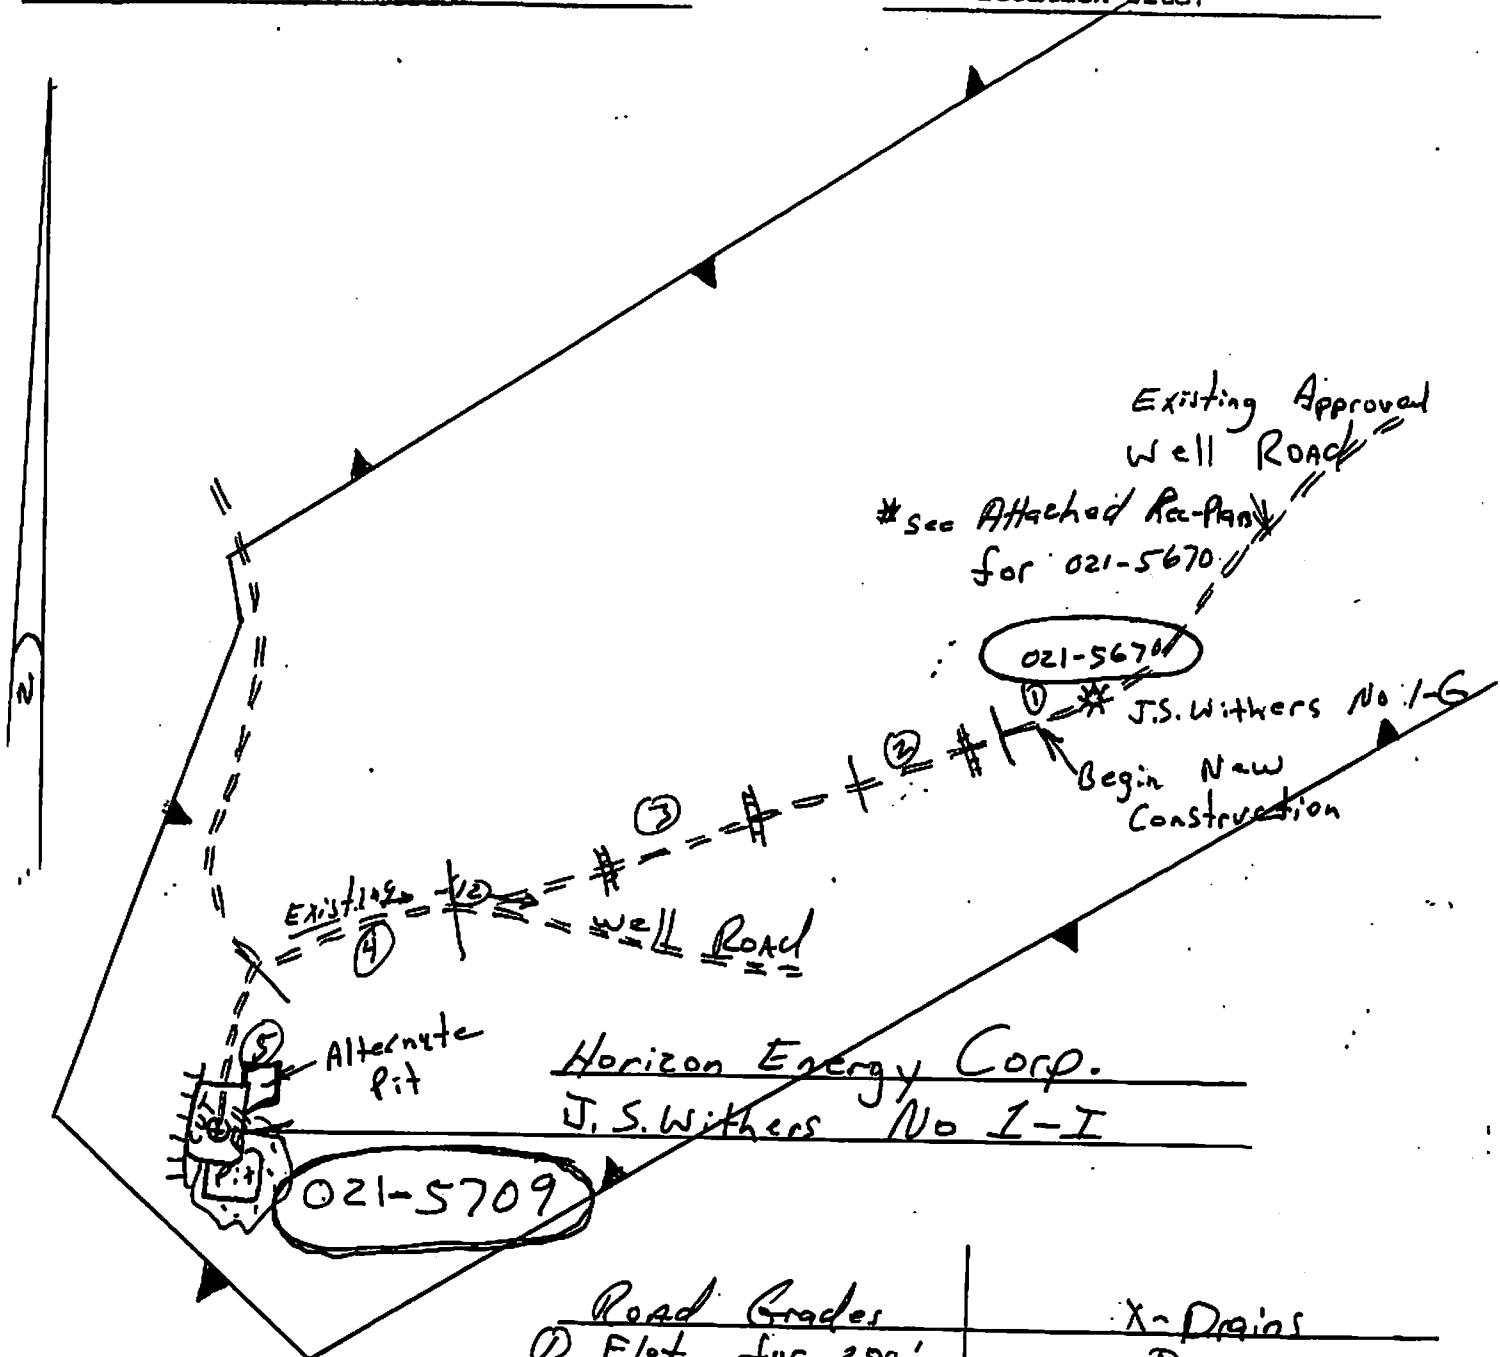 Existing Approved
Well Road
*see Attached Rec-Plan
for 021-5670
021-5670
①
J.S. Withers No. 1-G
Begin New
Construction
②
③
Existing
12
Well Road
④
⑤
Alternate
Pit
Pit
N
Horizon Energy Corp.
J.S. Withers No 1-I
021-5709
Road Grades
X-Drains
① Flat for 200'